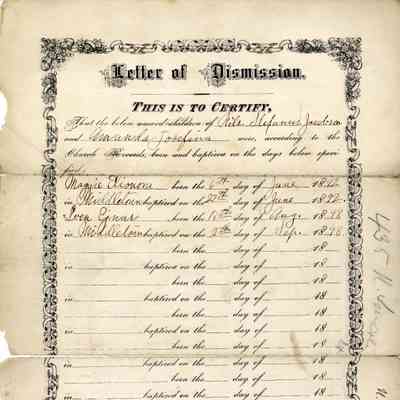 Letter of Dismission.
THIS IS TO CERTIFY,
That the below named children of Nils Stefanus Jacobson
and Amanda Josefina were, according to the
Church Records, born and baptized on the days below speci-
fied
Maggie Elionora born the 6th day of June 1892
in Middletown baptized the 27th day of June 1892.
Sven Einar born the 18th day of Aug. 1898
in Middletown baptized the 9th day of Sep. 1898
born the day of 18
in baptized on the day of 18
born the day of 18
in baptized on the day of 18
born the day of 18
in baptized on the day of 18
born the day of 18
in baptized on the day of 18
born the day of 18
in baptized on the day of 18
born the day of 18
in baptized on the day of 18
435